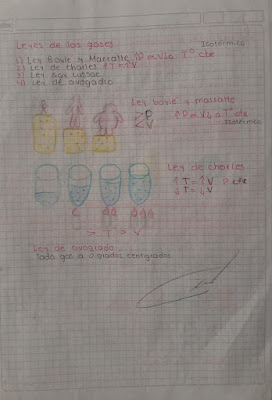 Leyes de los gases
Isotérmico
1) Ley Boyle y Mariotte ↑P α V↓ a T° cte
2) Ley de charles ↑T = ↑V
3) Ley gay lussac
4) Ley de avogadro
Ley boyle y mariotte
P
V
↑P α V↓ a T° cte
Isotérmico
Ley de charles
↑T = ↑V P cte
↓T = ↓V
> T° > V
Ley de avogrado
Todo gas a 0 grados centigrados